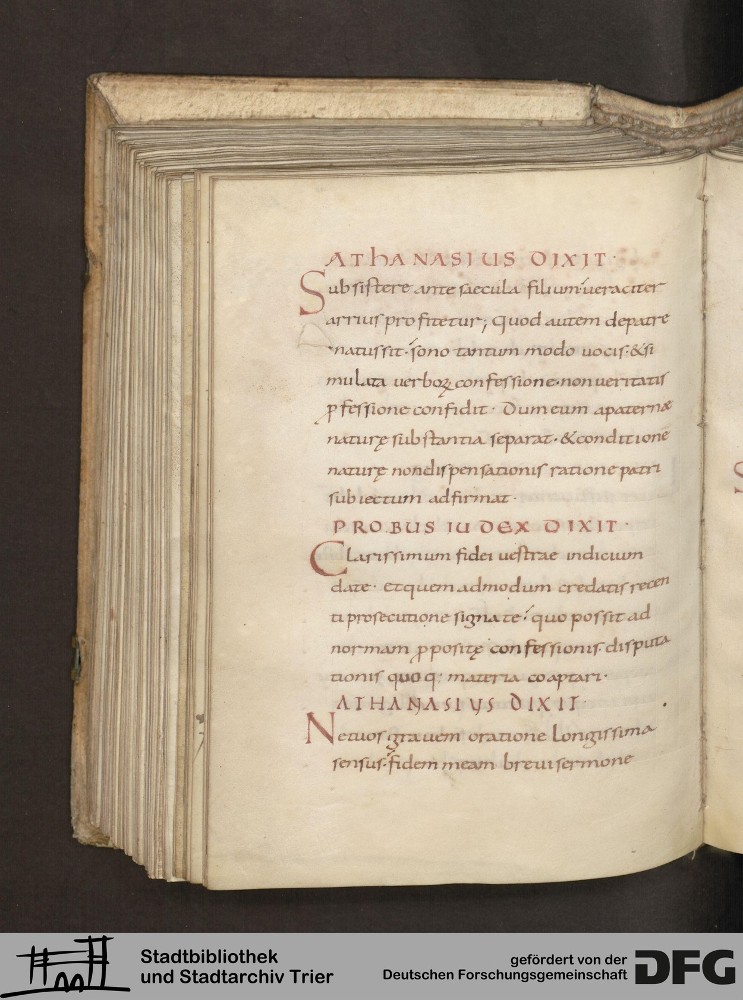 AThANASIUS DIXIT·
Subsistere ante saecula filium· ueraciter
arrius profitetur; quod autem depatre
natussit· sono tantum modo uocis· &si
mulata uerboꝝ confessione· nonueritatis
ꝓfessione confidit· Dum eum apaternæ
naturę substantia separat· &conditione
naturę nondispensationis ratione patri
subiectum adfirmat·
PROBUS IUDEX DIXIT·
Clarissimum fidei uestrae indicium
date· etquemadmodum credatis recen
ti prosecutione signate· quo possit ad
normam ꝓpositę confessionis· disputa
tionis quoq· materia coaptari·
ATHANASIUS DIXIT·
Neuos grauem oratione longissima
sensus· fidem meam breui sermone
Stadtbibliothek
und Stadtarchiv Trier
gefördert von der
Deutschen Forschungsgemeinschaft
DFG